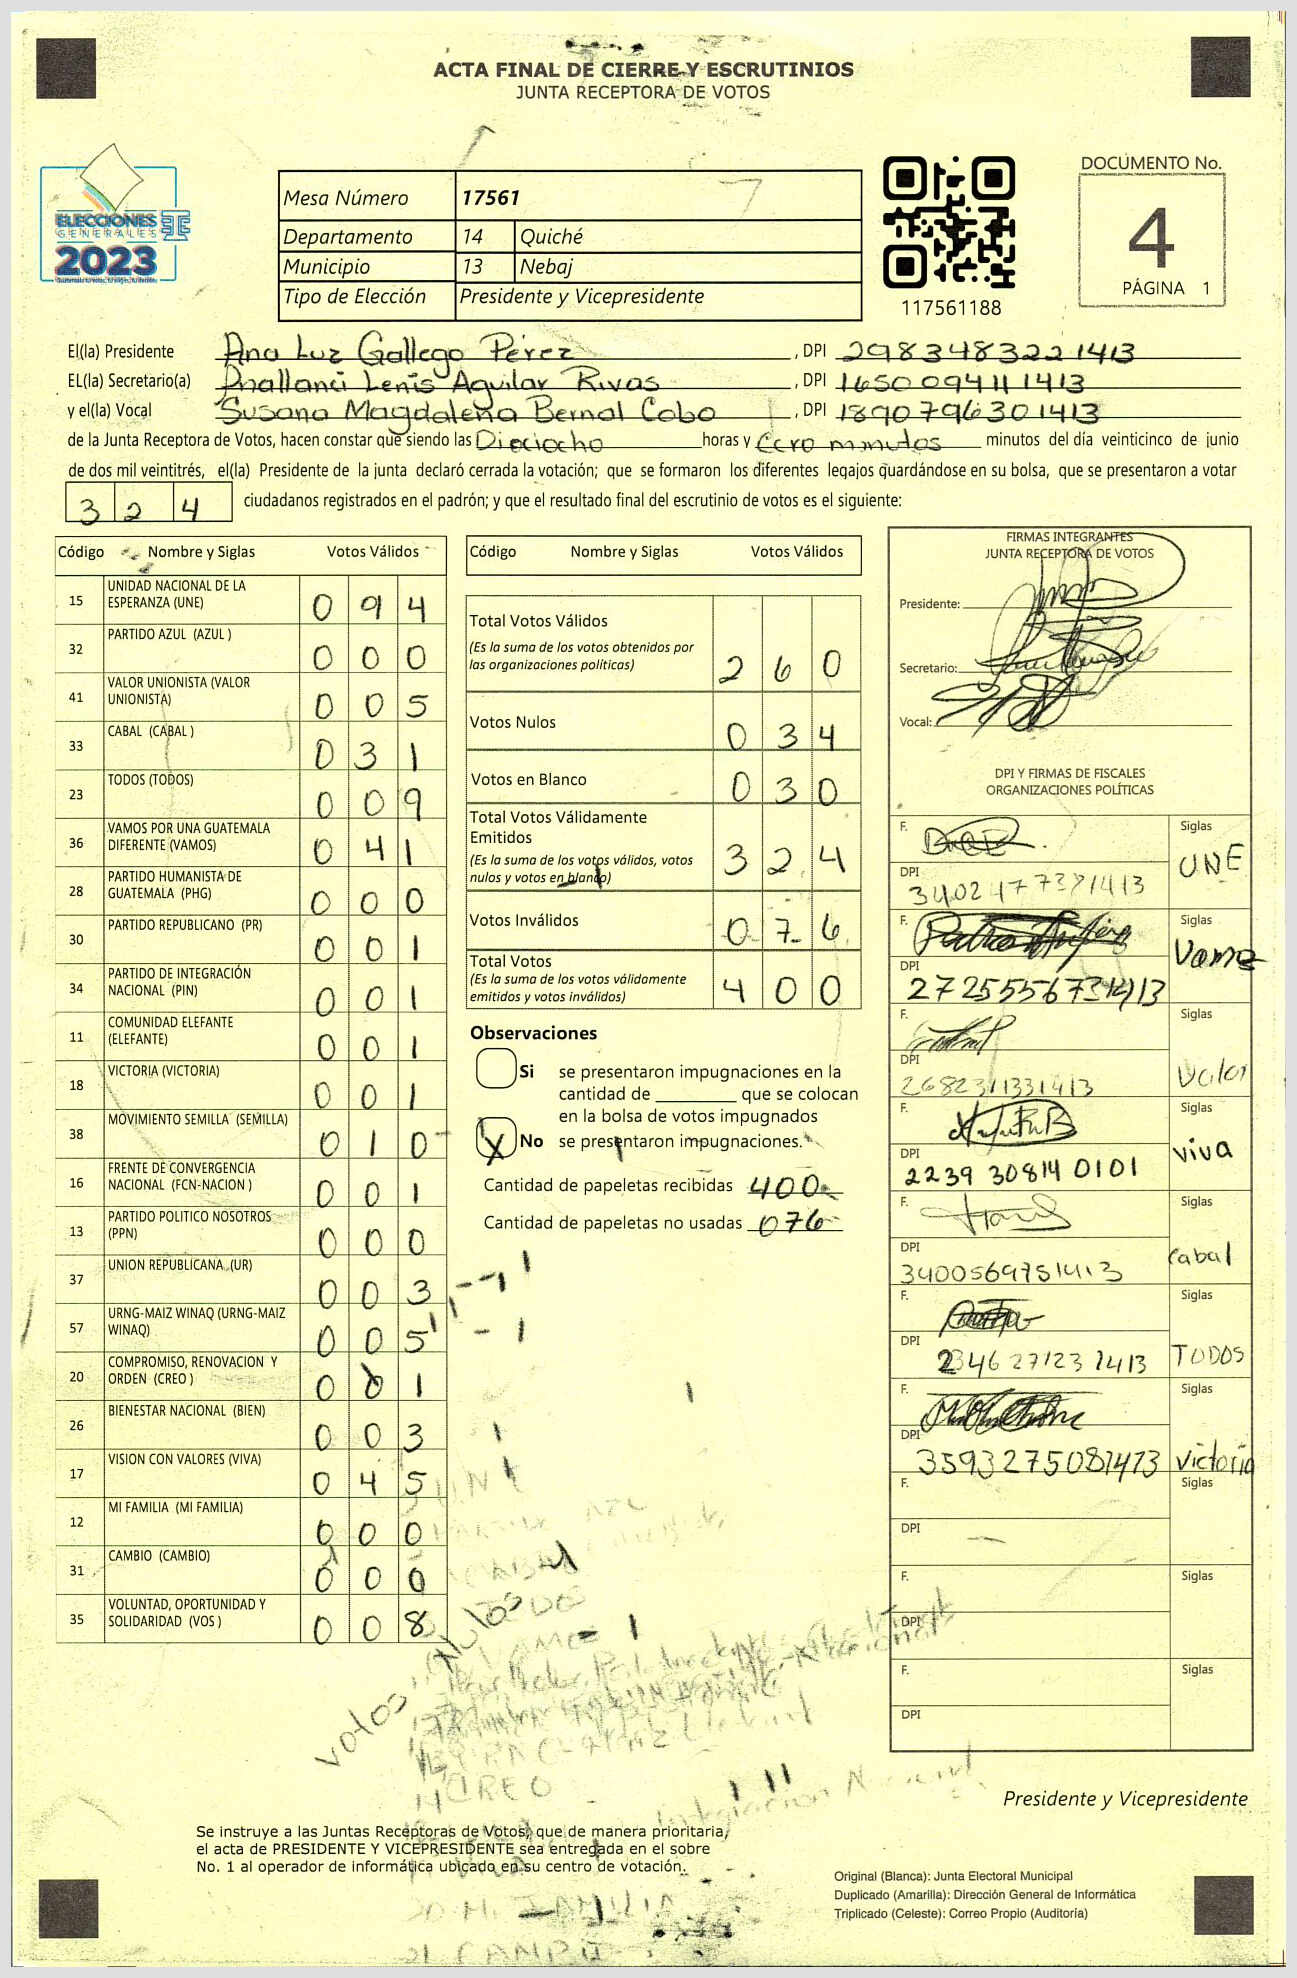 ACTA FINAL DE CIERRE Y ESCRUTINIOS
JUNTA RECEPTORA DE VOTOS
ELECCIONES
GENERALES
2023
Mesa Número 17561
Departamento 14 Quiché
Municipio 13 Nebaj
Tipo de Elección Presidente y Vicepresidente
117561188
DOCUMENTO No.
4
PÁGINA 1
El(la) Presidente Ana Luz Gallego Pérez, DPI 2983483221413
EL(la) Secretario(a) Anallanci Lenis Aguilar Rivas, DPI 1650094111413
y el(la) Vocal Susana Magdalena Bernal Cobo, DPI 1890796301413
de la Junta Receptora de Votos, hacen constar que siendo las Dieciocho horas y Cero minutos minutos del día veinticinco de junio
de dos mil veintitrés, el(la) Presidente de la junta declaró cerrada la votación; que se formaron los diferentes legajos guardándose en su bolsa, que se presentaron a votar
324 ciudadanos registrados en el padrón; y que el resultado final del escrutinio de votos es el siguiente:
Código Nombre y Siglas Votos Válidos
15 UNIDAD NACIONAL DE LA ESPERANZA (UNE) 094
32 PARTIDO AZUL (AZUL ) 000
41 VALOR UNIONISTA (VALOR UNIONISTA) 005
33 CABAL (CABAL ) 031
23 TODOS (TODOS) 009
36 VAMOS POR UNA GUATEMALA DIFERENTE (VAMOS) 041
28 PARTIDO HUMANISTA DE GUATEMALA (PHG) 000
30 PARTIDO REPUBLICANO (PR) 001
34 PARTIDO DE INTEGRACIÓN NACIONAL (PIN) 001
11 COMUNIDAD ELEFANTE (ELEFANTE) 001
18 VICTORIA (VICTORIA) 001
38 MOVIMIENTO SEMILLA (SEMILLA) 010
16 FRENTE DE CONVERGENCIA NACIONAL (FCN-NACION ) 001
13 PARTIDO POLITICO NOSOTROS (PPN) 000
37 UNION REPUBLICANA (UR) 003
57 URNG-MAIZ WINAQ (URNG-MAIZ WINAQ) 005
20 COMPROMISO, RENOVACION Y ORDEN (CREO ) 001
26 BIENESTAR NACIONAL (BIEN) 003
17 VISION CON VALORES (VIVA) 045
12 MI FAMILIA (MI FAMILIA) 000
31 CAMBIO (CAMBIO) 000
35 VOLUNTAD, OPORTUNIDAD Y SOLIDARIDAD (VOS ) 008
Código Nombre y Siglas Votos Válidos
Total Votos Válidos 260
(Es la suma de los votos obtenidos por
las organizaciones políticas)
Votos Nulos 034
Votos en Blanco 030
Total Votos Válidamente
Emitidos 324
(Es la suma de los votos válidos, votos
nulos y votos en blanco)
Votos Inválidos 076
Total Votos 400
(Es la suma de los votos válidamente
emitidos y votos inválidos)
Observaciones
Si se presentaron impugnaciones en la
cantidad de ________ que se colocan
en la bolsa de votos impugnados
X No se presentaron impugnaciones.
Cantidad de papeletas recibidas 400
Cantidad de papeletas no usadas 076
votos Nulos
CREO
FIRMAS INTEGRANTES
JUNTA RECEPTORA DE VOTOS
Presidente:
Secretario:
Vocal:
DPI Y FIRMAS DE FISCALES
ORGANIZACIONES POLÍTICAS
F. Siglas UNE
DPI 3402477371413
F. Siglas Vamos
DPI 2725556731413
F. Siglas Valor
DPI 2682311331413
F. Siglas viva
DPI 2239 30814 0101
F. Siglas Cabal
DPI 3400569751413
F. Siglas TODOS
DPI 2346271231413
F. Siglas victoria
DPI 3593275081413
F. Siglas
DPI
F. Siglas
DPI
F. Siglas
DPI
Presidente y Vicepresidente
Se instruye a las Juntas Receptoras de Votos, que de manera prioritaria,
el acta de PRESIDENTE Y VICEPRESIDENTE sea entregada en el sobre
No. 1 al operador de informática ubicado en su centro de votación.
Original (Blanca): Junta Electoral Municipal
Duplicado (Amarilla): Dirección General de Informática
Triplicado (Celeste): Correo Propio (Auditoría)